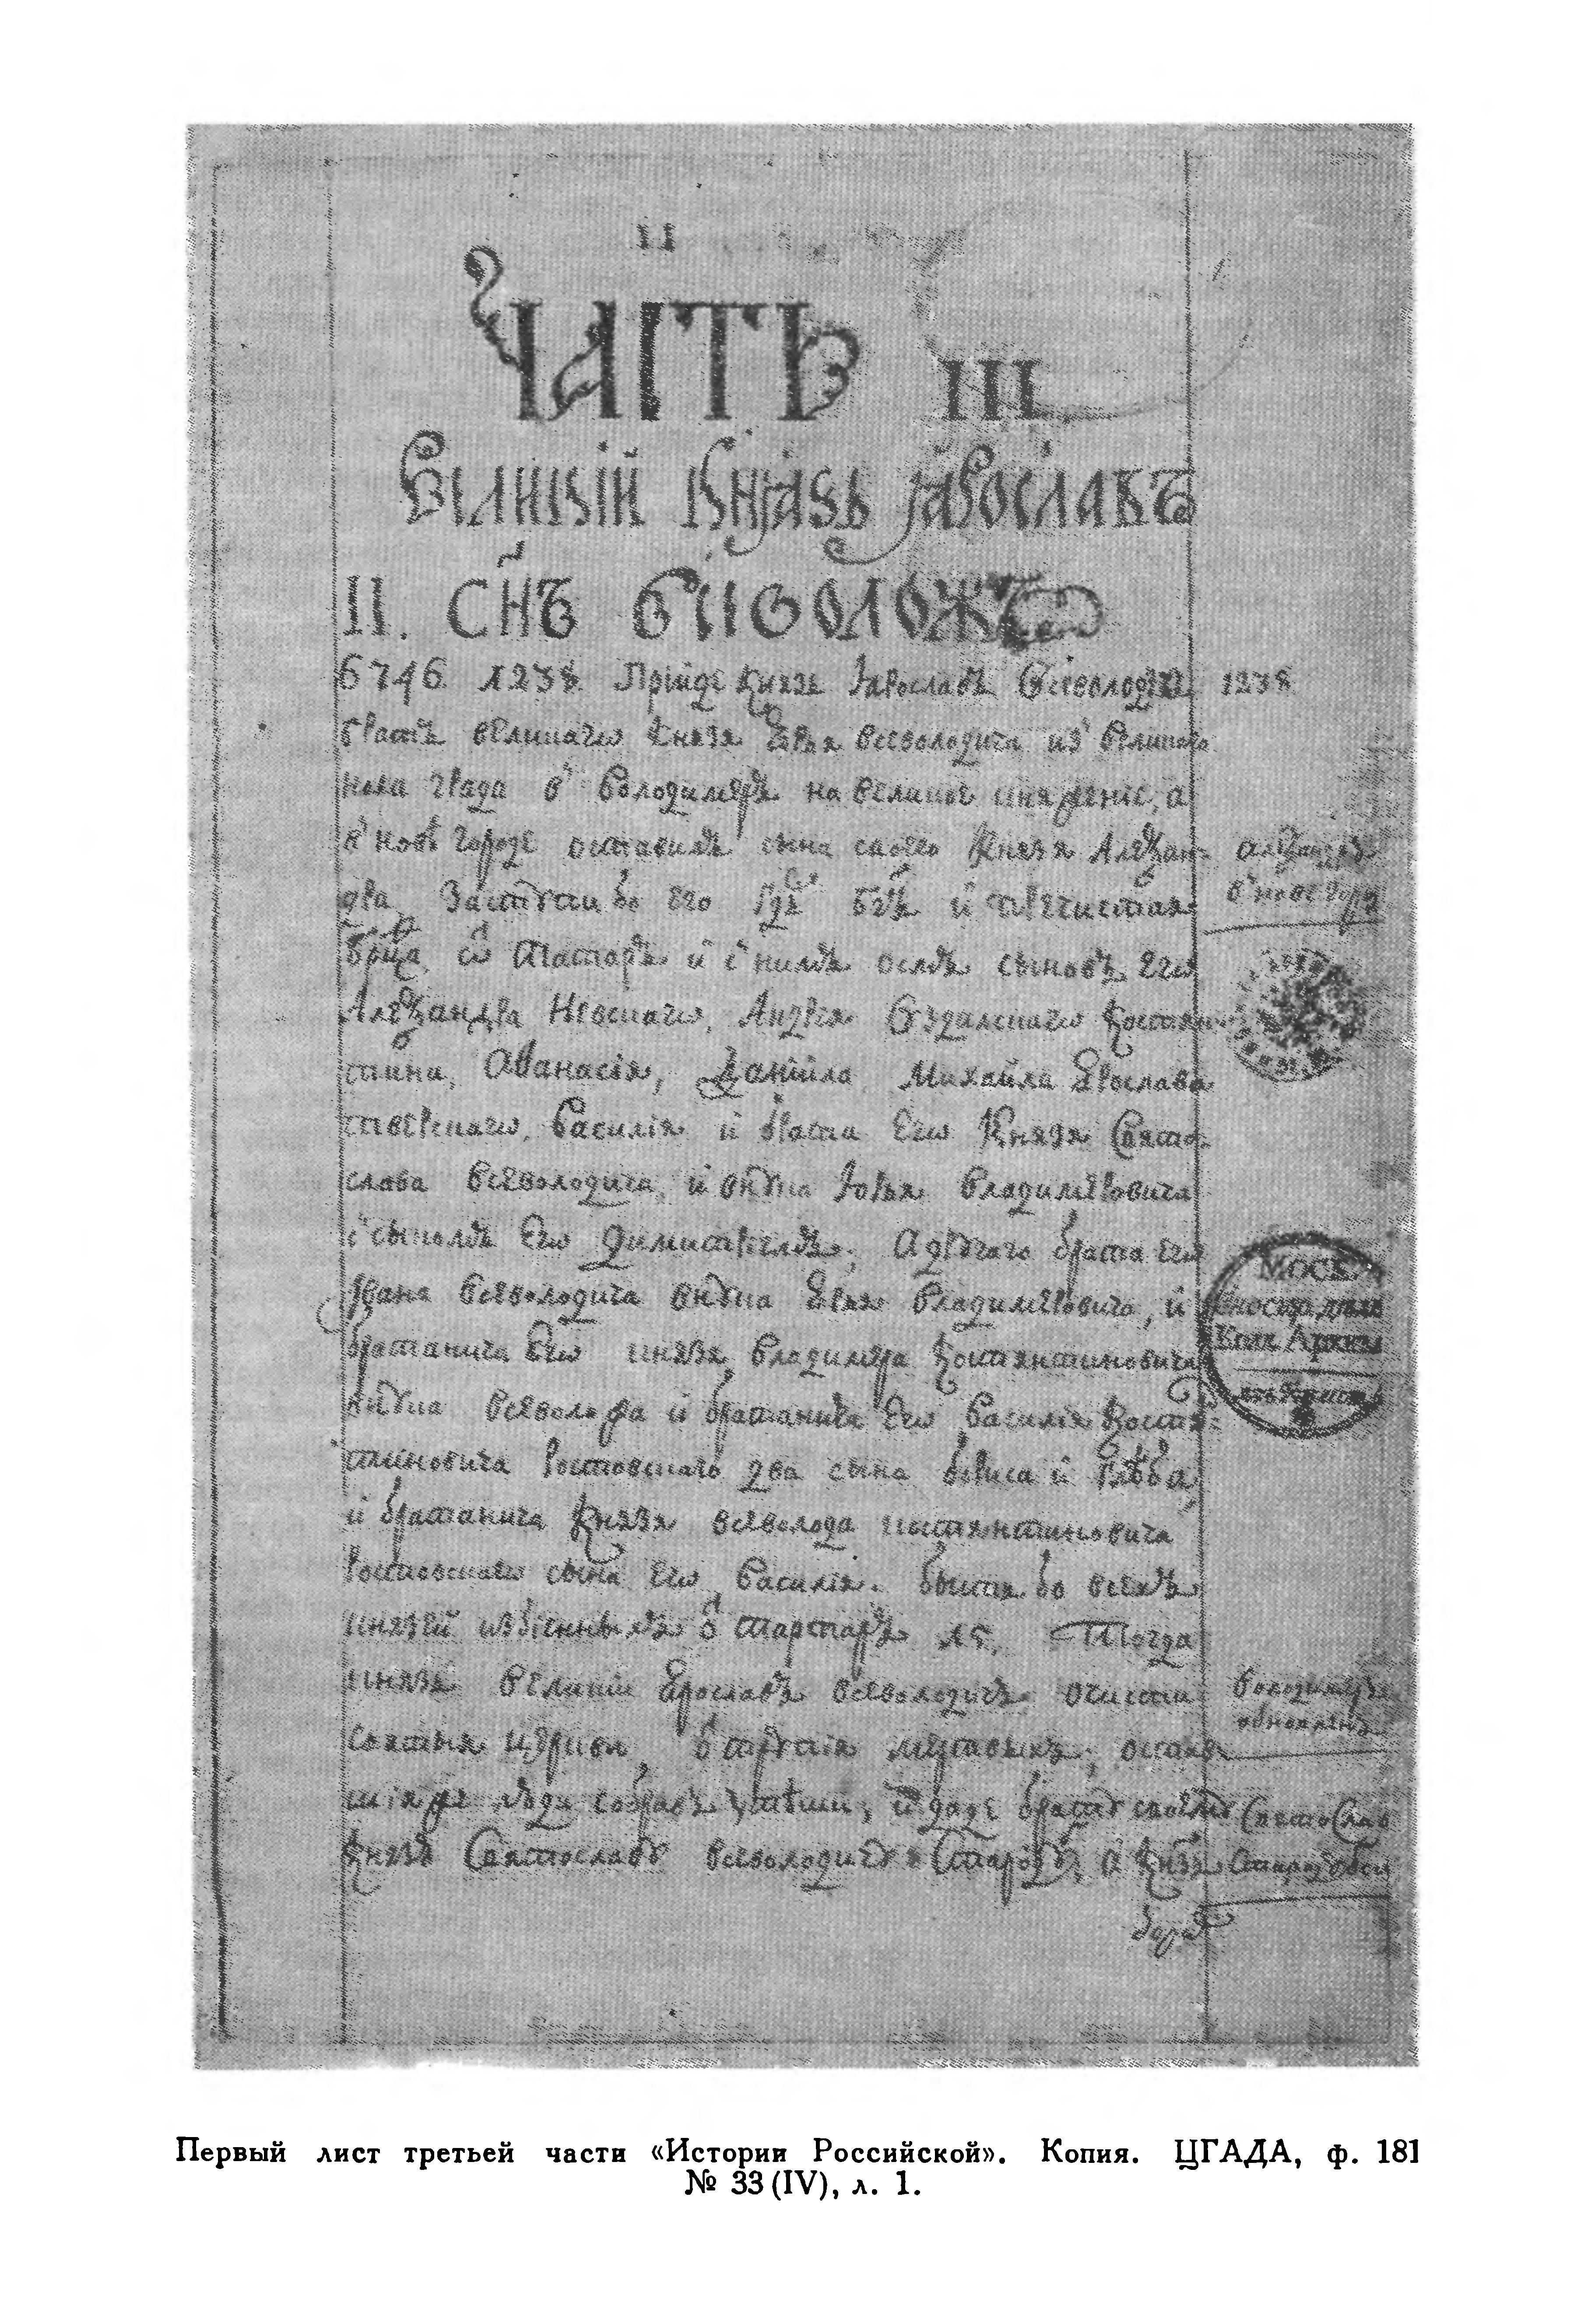 ЧАСТЬ III
Великій Князь Ярославъ
II. сн҃ъ Всеволожъ
6746 1238 Прїиде князь Ярославъ Всеволодичь 1238
братъ великаго Князя Юрья всеволодича из великого
нова града в Володимеръ на великое княженіе, а
в нове городе оставилъ сына своего Князя Алеѯан-
дра Заступи бо его Гдь Бгъ и пречистая
Бр҃ца ѿ Татаръ и с нимъ осмь сыновъ его
Алеѯандра Невскаго, Андрея Суздалскаго Костян-
тина, Аѳанасія, Даніила Михайла Ярослава
тверскаго, Василія и брата Его Князя Свято-
слава Всеволодича, и внука Юрья Владимеровича
с сыномъ Его Димитреемъ, А другаго брата Его
Ивана Всеволодича внука Юрья Владимеровича, и
братанича Его князя Владимера Костянтиновича
внука Всеволожа и братанича Его Василія Костян-
тиновича Ростовскаго два сына бориса и Глѣба,
и братанича Князя всеволода костянтиновича
Ростовскаго сына Его Василія. бысть бо всехъ
князей избіенныхъ ѿ тартаръ 15. Тогда
князь великіи Ярославъ всеволодичь очисти
святыя церкви, ѿ трупія мертвыхъ, остав-
шія же люди собравъ утѣши, и даде брату своему
Князю Святославу всеволодичу Стародубъ, а Князь
алеѯандръ
в нове городе
Моск
Иностр. дѣлъ
Колл. Архивы
Володимеръ
обновленъ
Святослав
Первый лист третьей части «Истории Российской». Копия. ЦГАДА, ф. 181
№ 33 (IV), л. 1.